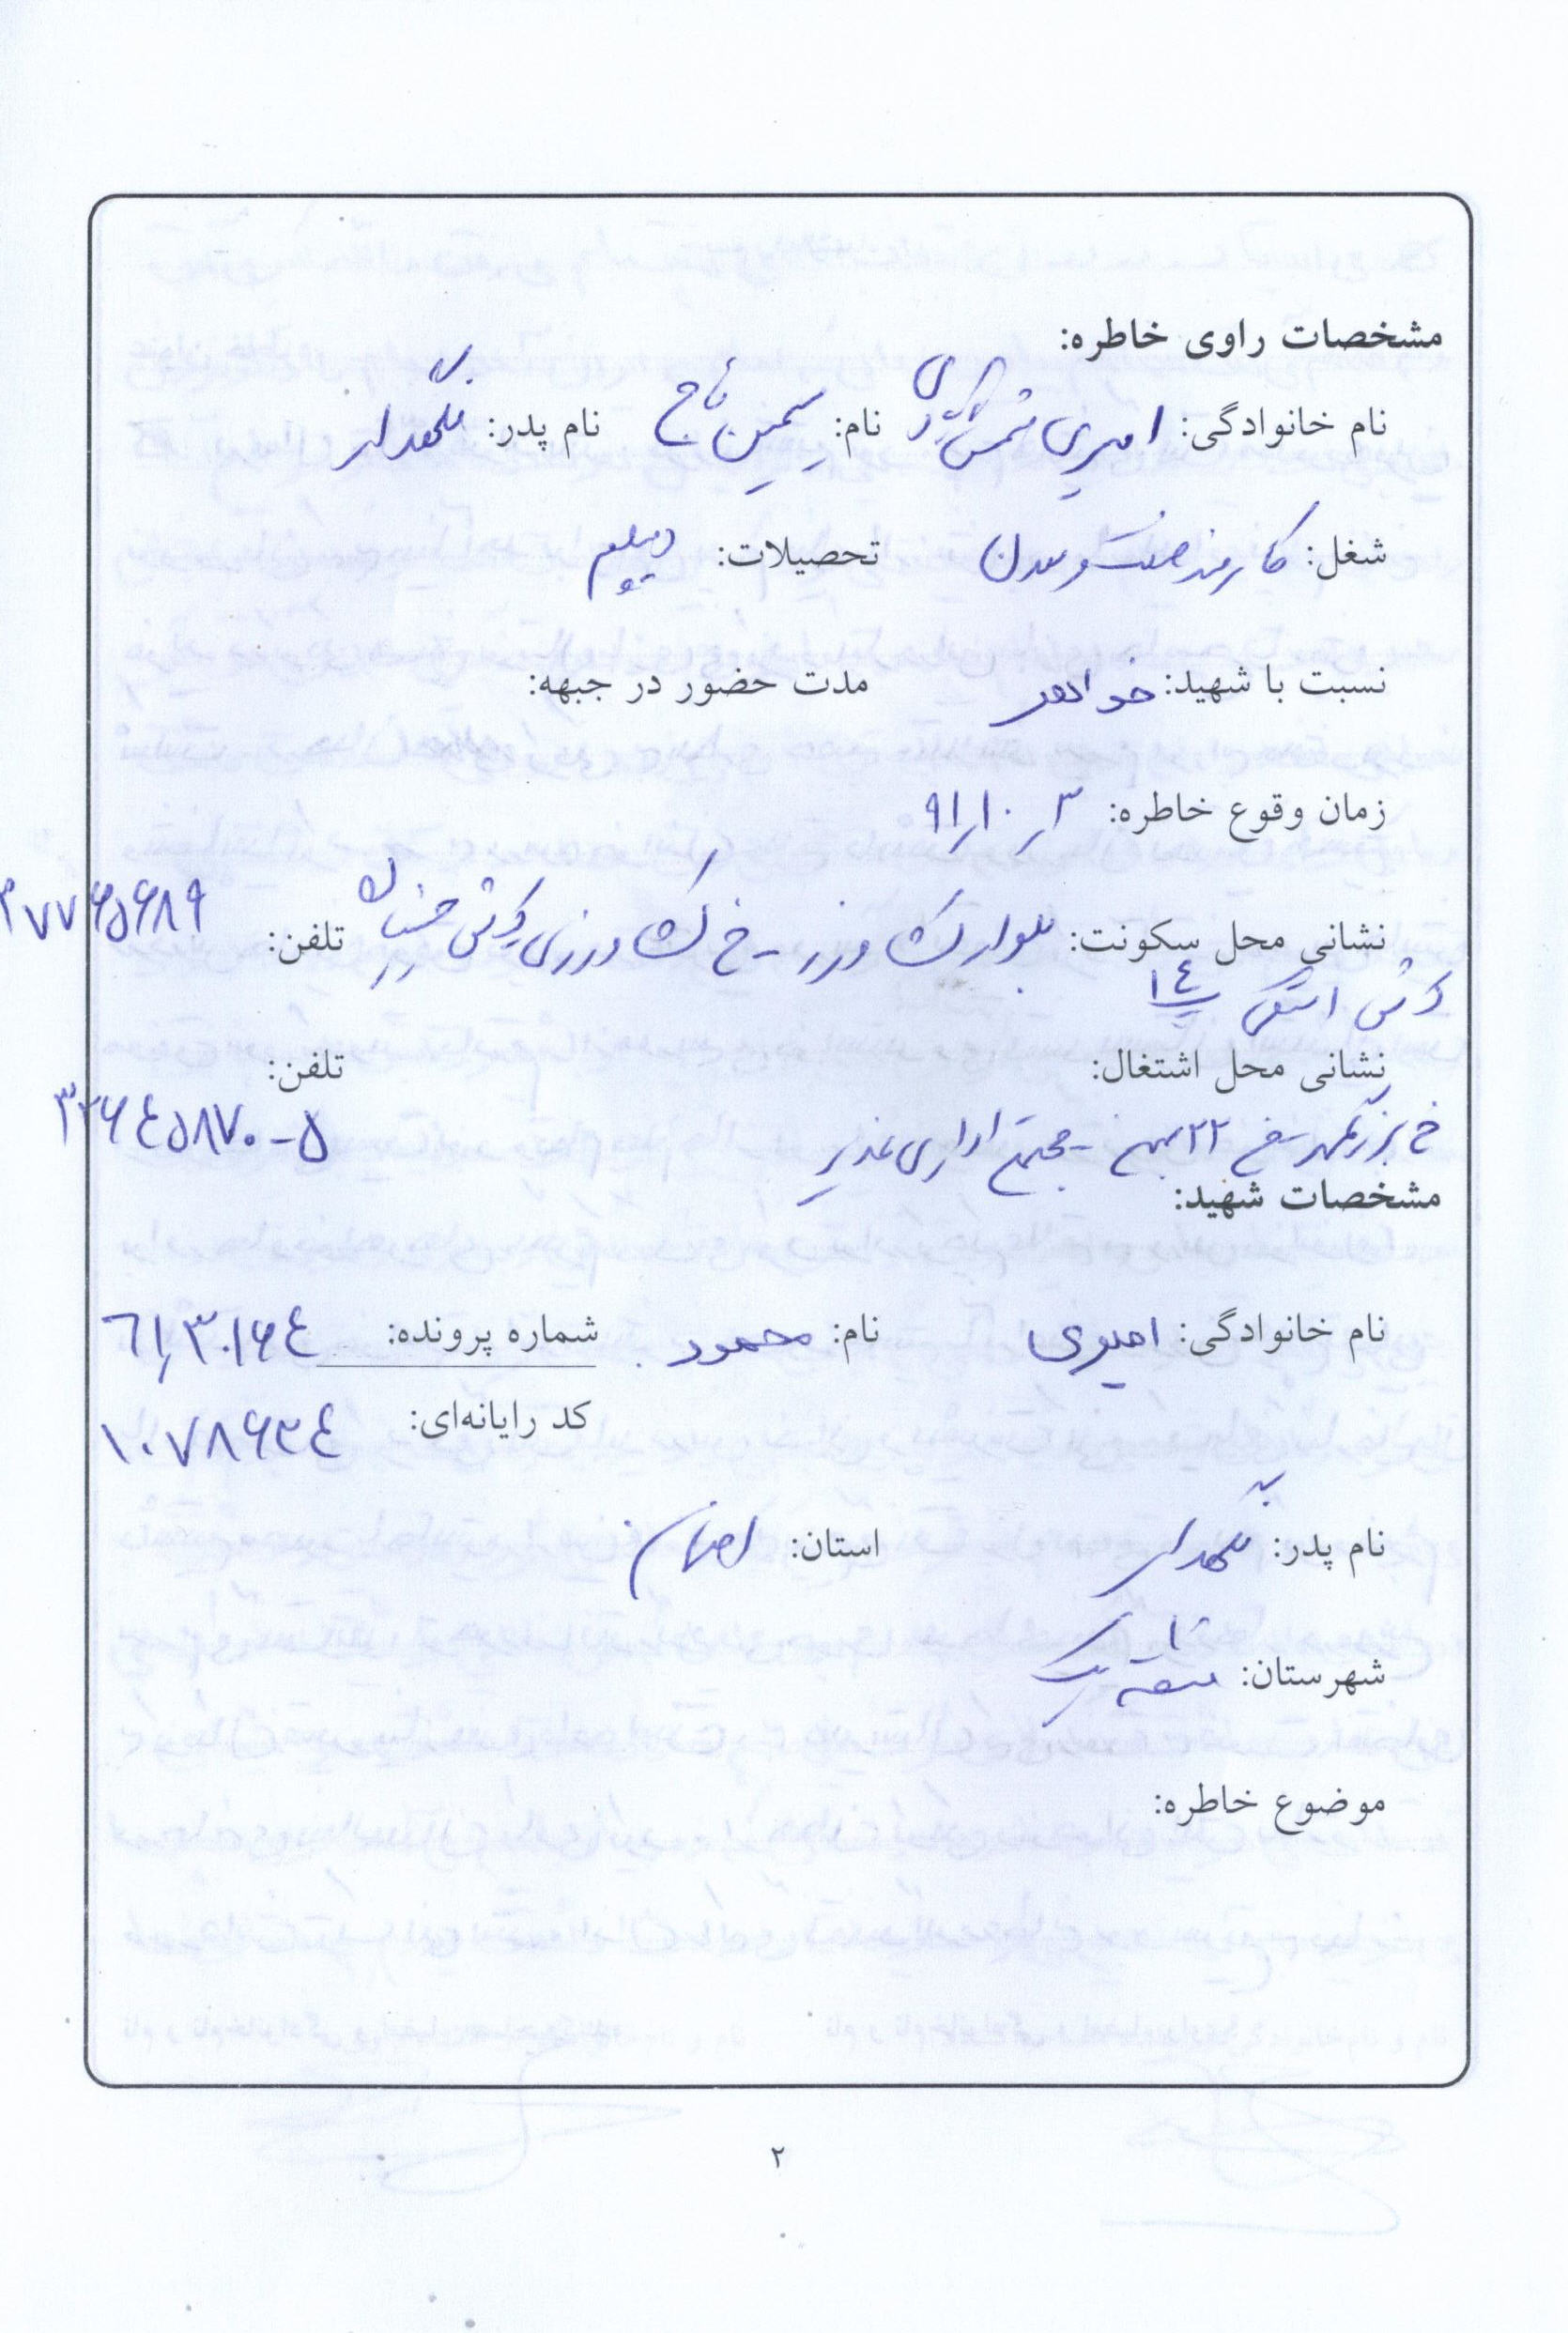 مشخصات راوی خاطره:
نام خانوادگی: امیری نام: سیمین تاج نام پدر: نگهدار
شغل: کارمند صنعت و معدن تحصیلات: دیپلم
نسبت با شهید: خواهر مدت حضور در جبهه:
زمان وقوع خاطره: ۳ر۱۰ر۹۱
نشانی محل سکونت: بلوار کشاورز - خ کشاورزی کوی تلفن: ۳۷۷۶۵۶۸۹
کوی ۱۴
نشانی محل اشتغال: تلفن:
خ بزرگمهر - خ ۲۲ بهمن - مجتمع اداری غدیر ۳۲۶۴۵۸۷۰-۵
مشخصات شهید:
نام خانوادگی: امیری نام: محمود شماره پرونده: ۶۱ر۳۰۱۶۴
کد رایانه‌ای: ۱۰۷۸۶۳۴
نام پدر: نگهدار استان: اصفهان
شهرستان: منطقه یک
موضوع خاطره:
۲